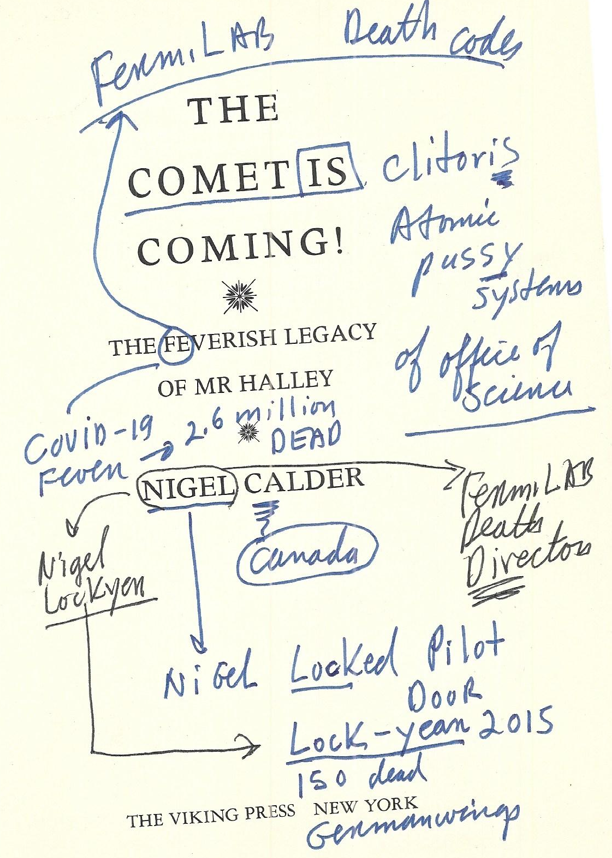 FermiLAB Death codes
THE
COMET IS clitoris
Atomic
COMING!
pussy
systems
THE FEVERISH LEGACY
of office of
OF MR HALLEY
Science
Covid-19 → 2.6 million
Fever DEAD
NIGEL CALDER
FermiLAB
Death
Director
Canada
Nigel
Lockyer
NiGEL Locked Pilot
DOOR
Lock-year 2015
150 dead
THE VIKING PRESS NEW YORK
Germanwings